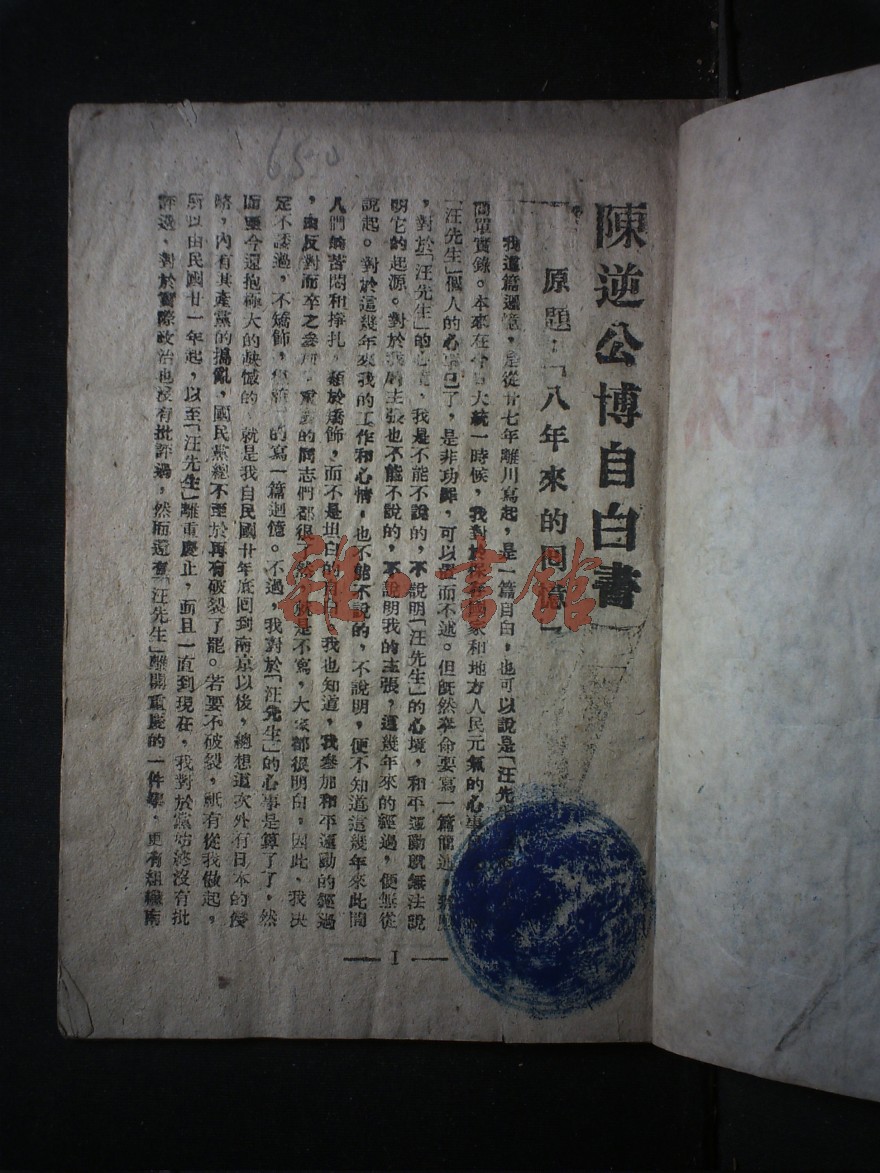 陳逆公博自白書
原題：「八年來的回憶」
我這篇迴憶，是從廿七年離川寫起，是一篇自白，也可以說是「汪先生
簡單實錄。本來在今日大統一時候，我對於保存國家和地方人民元氣的心事
「汪先生」個人的心事已了，是非功罪，可以置而不述。但既然奉命要寫一篇簡述
，對於「汪先生」的心境，我是不能不說的，不說明「汪先生」的心境，和平運動就無法說
明它的起源。對於我的主張也不能不說的，不說明我的主張，這幾年來的經過，便無從
說起。對於這幾年來我的工作和心情，也不能不說的，不說明，便不知道這幾年來此間
人們的苦悶和掙扎，類於矯飾，而不是坦白的自白。我也知道，我參加和平運動的經過
，由反對而卒之參加，重慶的同志們都很了然，就是不寫，大家都很明白，因此，我決
定不諉過，不矯飾，的寫一篇迴憶。不過，我對於「汪先生」的心事是算了了，然
而至今還抱極大的缺憾的，就是我自民國廿年底回到南京以後，總想這次外有日本的侵
略，內有共產黨的搗亂，國民黨總不至於再有破裂了罷。若要不破裂，祇有從我做起，
所以由民國廿一年起，以至「汪先生」離重慶止，而且一直到現在，我對於黨始終沒有批
評過，對於實際政治也沒有批評過，然而還有「汪先生」離開重慶的一件事，更有組織南
— 1 —
650
雜·書館